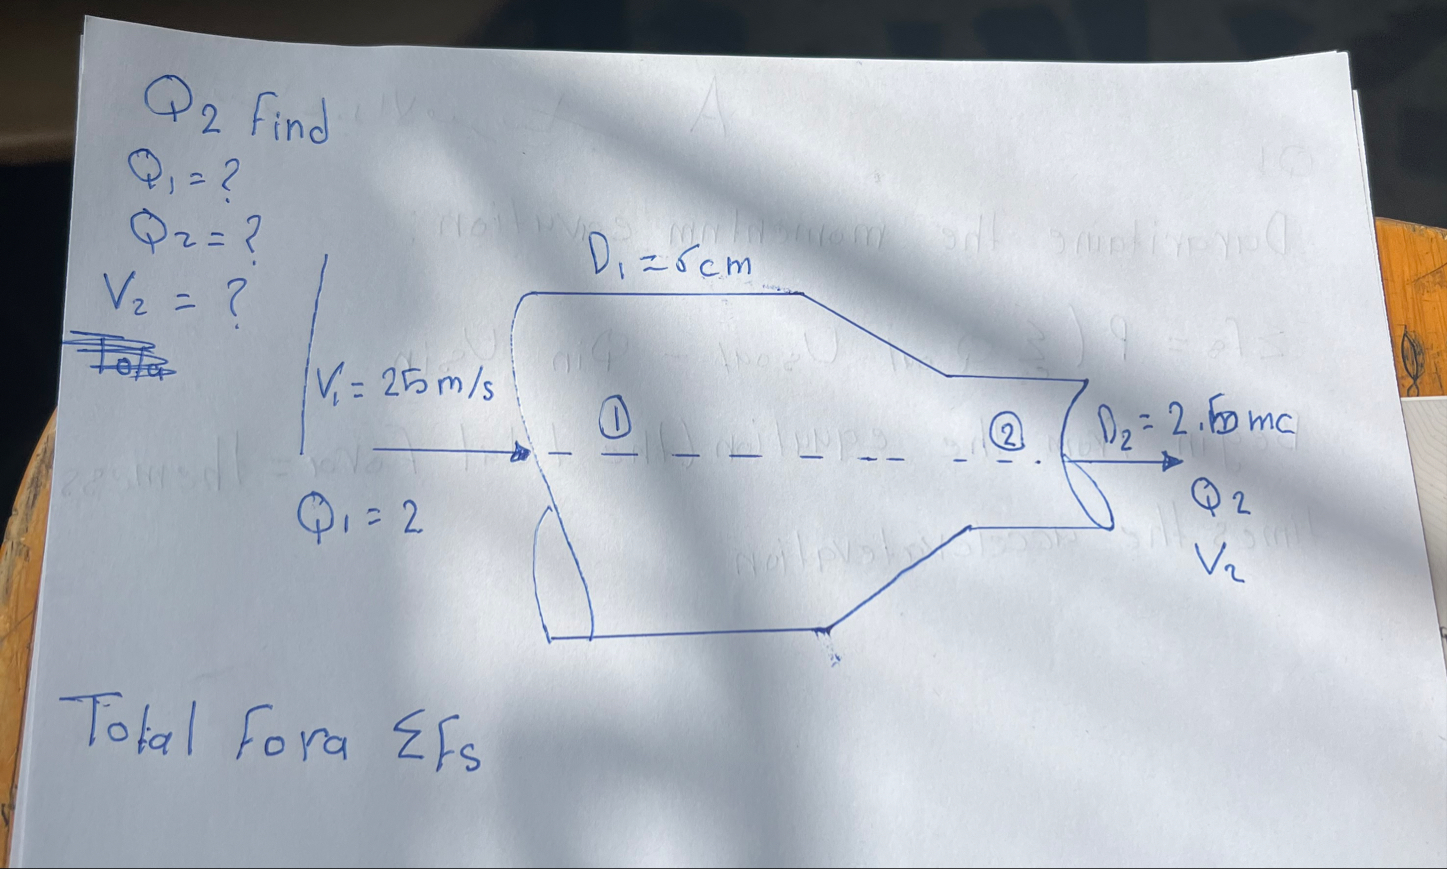 Q2 Find
Q1 = ?
Q2 = ?
V2 = ?
D1 = 5cm
V1 = 25m/s
①
②
D2 = 2.50mc
Q1 = 2
Q2
V2
Total Fora ΣFs